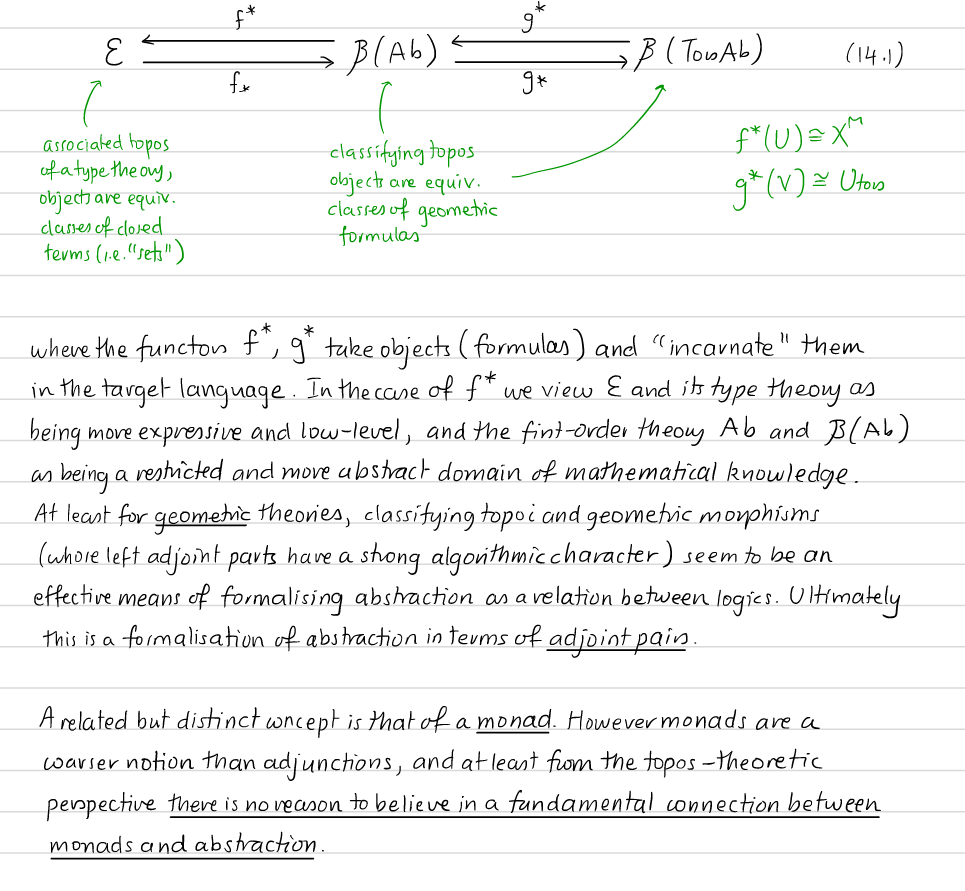 f* g*
ℰ ⟵ ⟶ ℬ(Ab) ⟵ ⟶ ℬ(TorsAb) (14.1)
f_* g_*
associated topos
of a type theory,
objects are equiv.
classes of closed
terms (i.e. "sets")
classifying topos
objects are equiv.
classes of geometric
formulas
f*(U) ≅ X^M
g*(V) ≅ U_tors
where the functors f*, g* take objects (formulas) and "incarnate" them
in the target language. In the case of f* we view ℰ and its type theory as
being more expressive and low-level, and the first-order theory Ab and ℬ(Ab)
as being a restricted and more abstract domain of mathematical knowledge.
At least for geometric theories, classifying topoi and geometric morphisms
(whose left adjoint parts have a strong algorithmic character) seem to be an
effective means of formalising abstraction as a relation between logics. Ultimately
this is a formalisation of abstraction in terms of adjoint pairs.
A related but distinct concept is that of a monad. However monads are a
coarser notion than adjunctions, and at least from the topos-theoretic
perspective there is no reason to believe in a fundamental connection between
monads and abstraction.